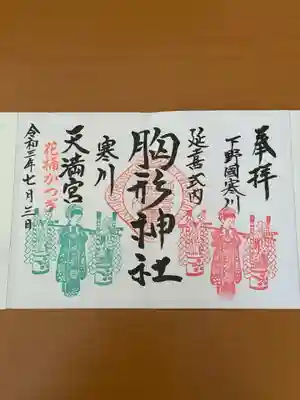 奉拝
下野國寒川
延喜式内
胸形神社
寒川
天満宮
花桶かつぎ
令和三年七月三日